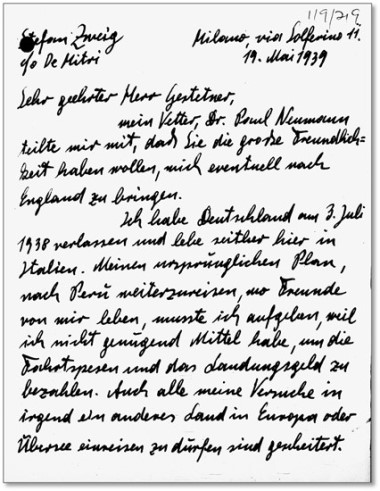 1/9/219
Stefan Zweig
c/o De Mitri
Milano, via Solferino 11.
19. Mai 1939
Sehr geehrter Herr Gestetner,
mein Vetter, Dr. Paul Neumann
teilte mir mit, daß Sie die große Freundlich=
keit haben wollen, mich eventuell nach
England zu bringen.
Ich habe Deutschland am 3. Juli
1938 verlassen und lebe seither hier in
Italien. Meinen ursprünglichen Plan,
nach Perú weiterzureisen, wo Freunde
von mir leben, musste ich aufgeben, weil
ich nicht genügend Mittel habe, um die
Fahrtspesen und das Landungsgeld zu
bezahlen. Auch alle meine Versuche in
irgend ein anderes Land in Europa oder
Übersee einreisen zu dürfen sind gescheitert.